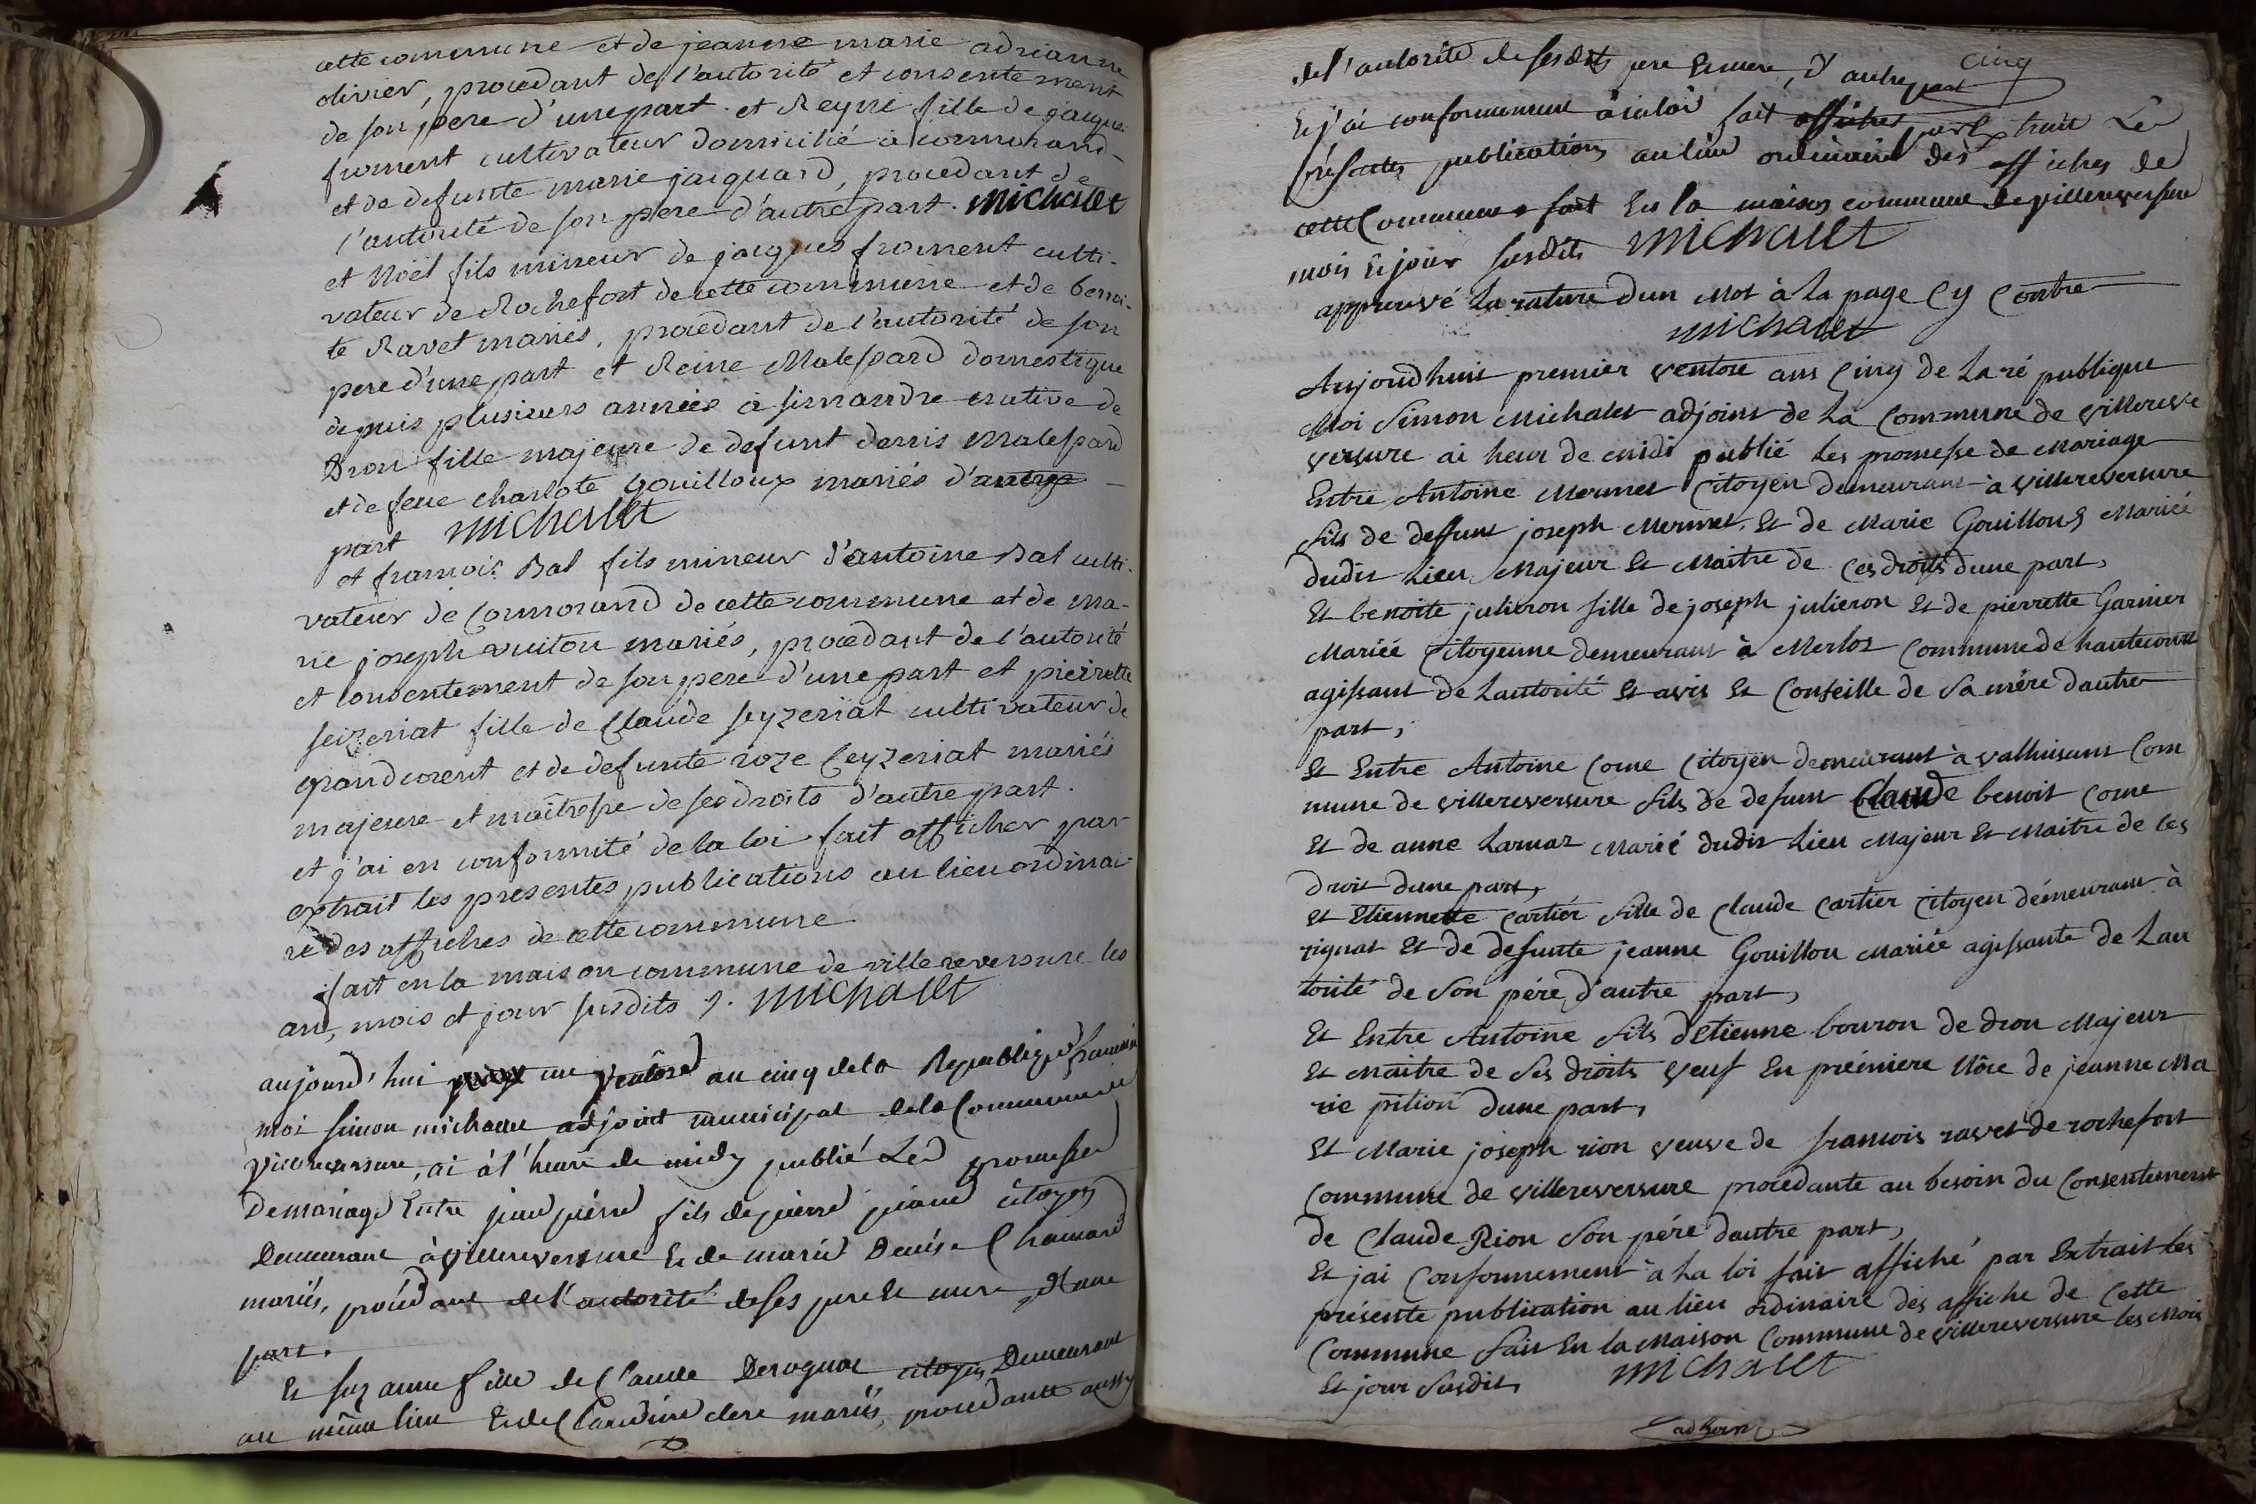 cette commune et de jeanne marie adrianne
olivier, procedant de l'autorité et consentement
de son pere d'une part. et Reyne fille de jacque
froment cultivateur domicilié à cormorand
et de defunte marie jacquard, procedant de
l'autorité de son pere d'autre part. Michalet
et Noël fils mineur de jacques froment culti-
vateur de Rochefort de cette commune et de benoi-
te Ravet mariés, procedant de l'autorité de son
pere d'une part et Reine Malespard domestique
depuis plusieurs années à simandre native de
Dron fille majeure de defunt denis Malespard
et de feue charlote Gouilloux mariés d'autre
part Michalet
et francois Bal fils mineur d'antoine Bal culti-
vateur de Cormorand de cette commune et de ma-
rie joseph vuiton mariés, procedant de l'autorité
et consentement de son pere d'une part et pierrette
seizeriat fille de Claude seyzeriat cultivateur de
grandcorent et de defunte roze Ceyzeriat mariés
majeure et maîtresse de ses droits d'autre part.
et j'ai en conformité de la loi fait afficher par
extrait les presentes publications au lieu ordinai-
re des affiches de cette commune
fait en la maison commune de villereversure les
an, mois et jour susdits ". Michalet
aujourd'hui un ventôse an cinq de la Republique francaise
moi simon michalet adjoint municipal de la Commune de
Villereversure, ai à l'heure de midy publié Les promesses
De mariage Entre jean pierre fils de pierre citoyen
Demeurant à Villereversure Et de marie Denise Chanard
mariés, procédant de l'autorité de ses pere Et mere d'une
part.
Et suzanne fille de Claude Derognat citoyen Demeurant
au même lieu Et de Claudine clere mariés, procedante aussy
cinq
de l'autorité de sesdits pere Et mere, d'autre part
Et j'ai conformement à la loi fait afficher par Extrait Les
présentes publications au lieu ordinaire des affiches de
cette Commune fait En la maison commune de villereversure
mois Et jour susdits Michalet
approuvé La rature dun Mot à La page Cy Contre
Michalet
Aujourdhuit premier ventose ans Cinq de La ré publique
Moi Simon Michalet adjoint de La Commune de villereve
versure ai heur de midi publié Les promesse de Mariage
Entre Antoine Mermet Citoyen demeurant à villereversure
fils de deffunt joseph Mermet. Et de Marie Gouilloux Mariée
dudit Lieu Majeur Et Maitre de Ces droits dune part,
Et benoite julieron fille de joseph julieron Et de pierrette Garnier
Mariée Citoyenne demeurant à Merloz Commune de hautecourt
agissant de Lautorité Et avis Et Conseille de Sa mére dautre
part,
Et Entre Antoine Come Citoyen demeurant à valhuisant Com
mune de villereversure fils de defunt Claude benoit Come
Et de anne Larnaz Marié dudit Lieu Majeur Et Maitre de ses
droit dune part,
Et Etiennette Cartier fille de Claude Cartier Citoyen démeurant à
rignat Et de defunte jeanne Gouillou Mariée agissante de Lau
torité de Son pére d'autre part,
Et Entre Antoine fils d'Etienne bouron de dron Majeur
Et Maitre de Ses droits veuf En prémiere Nôce de jeanne Ma
rie pition dune part,
Et Marie joseph rion veuve de francois ravet de rochefort
Commune de villereversure procedante au besoin du Consentement
de Claude Rion Son pére dautre part,
Et jai Conformement à La loi fait affiché par Extrait Les
présente publication au lieu ordinaire des affiche de Cette
Commune fait En la Maison Commune de villereversure Les Mois
Et jour Susdit, Michalet